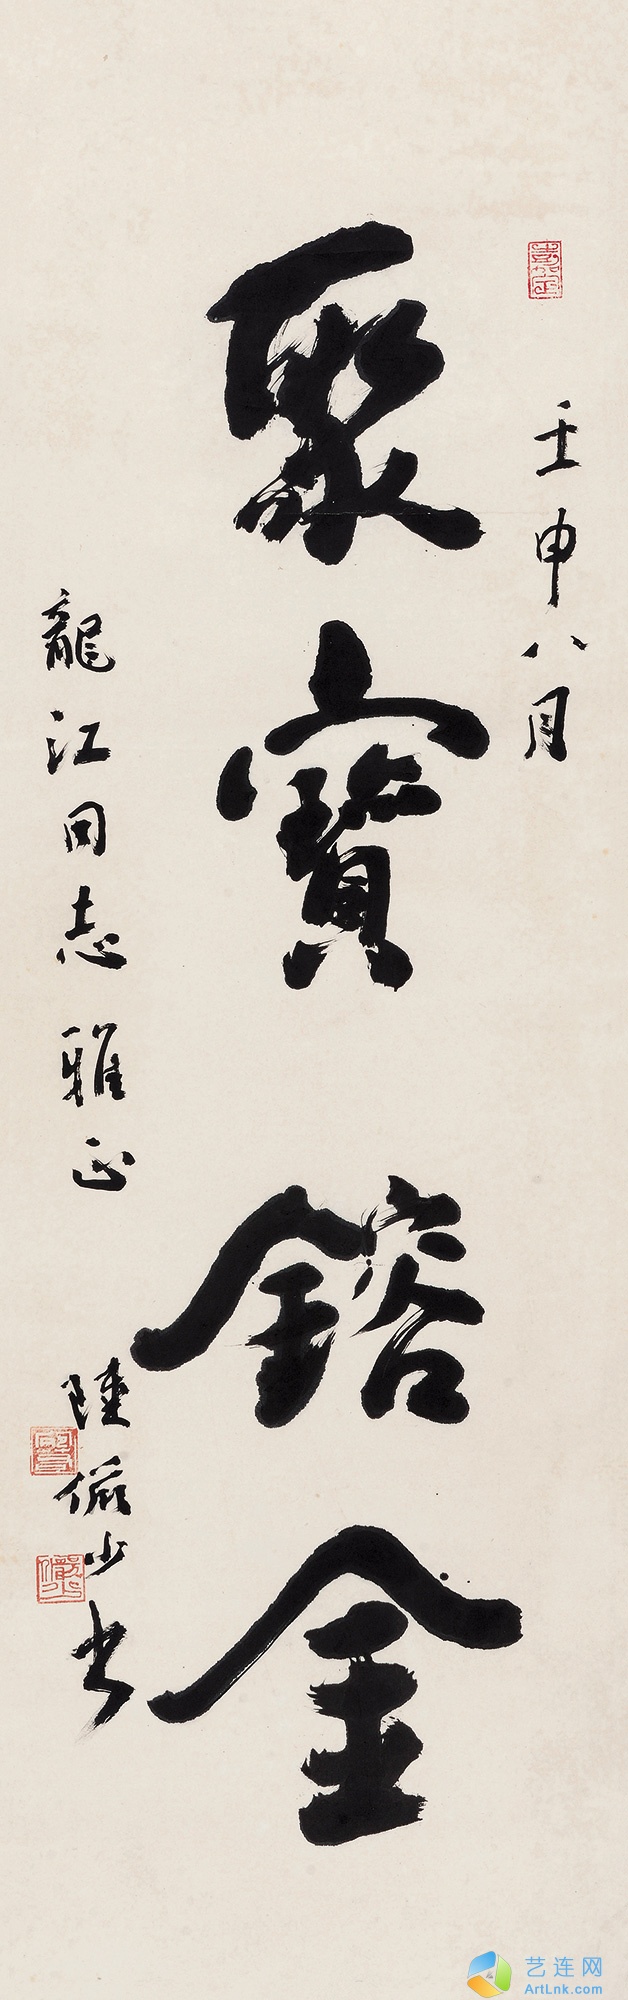 壬申八月
聚寶鎔金
龍江同志雅正
陸儼少书
嘉定
艺连网
ArtLnk.com